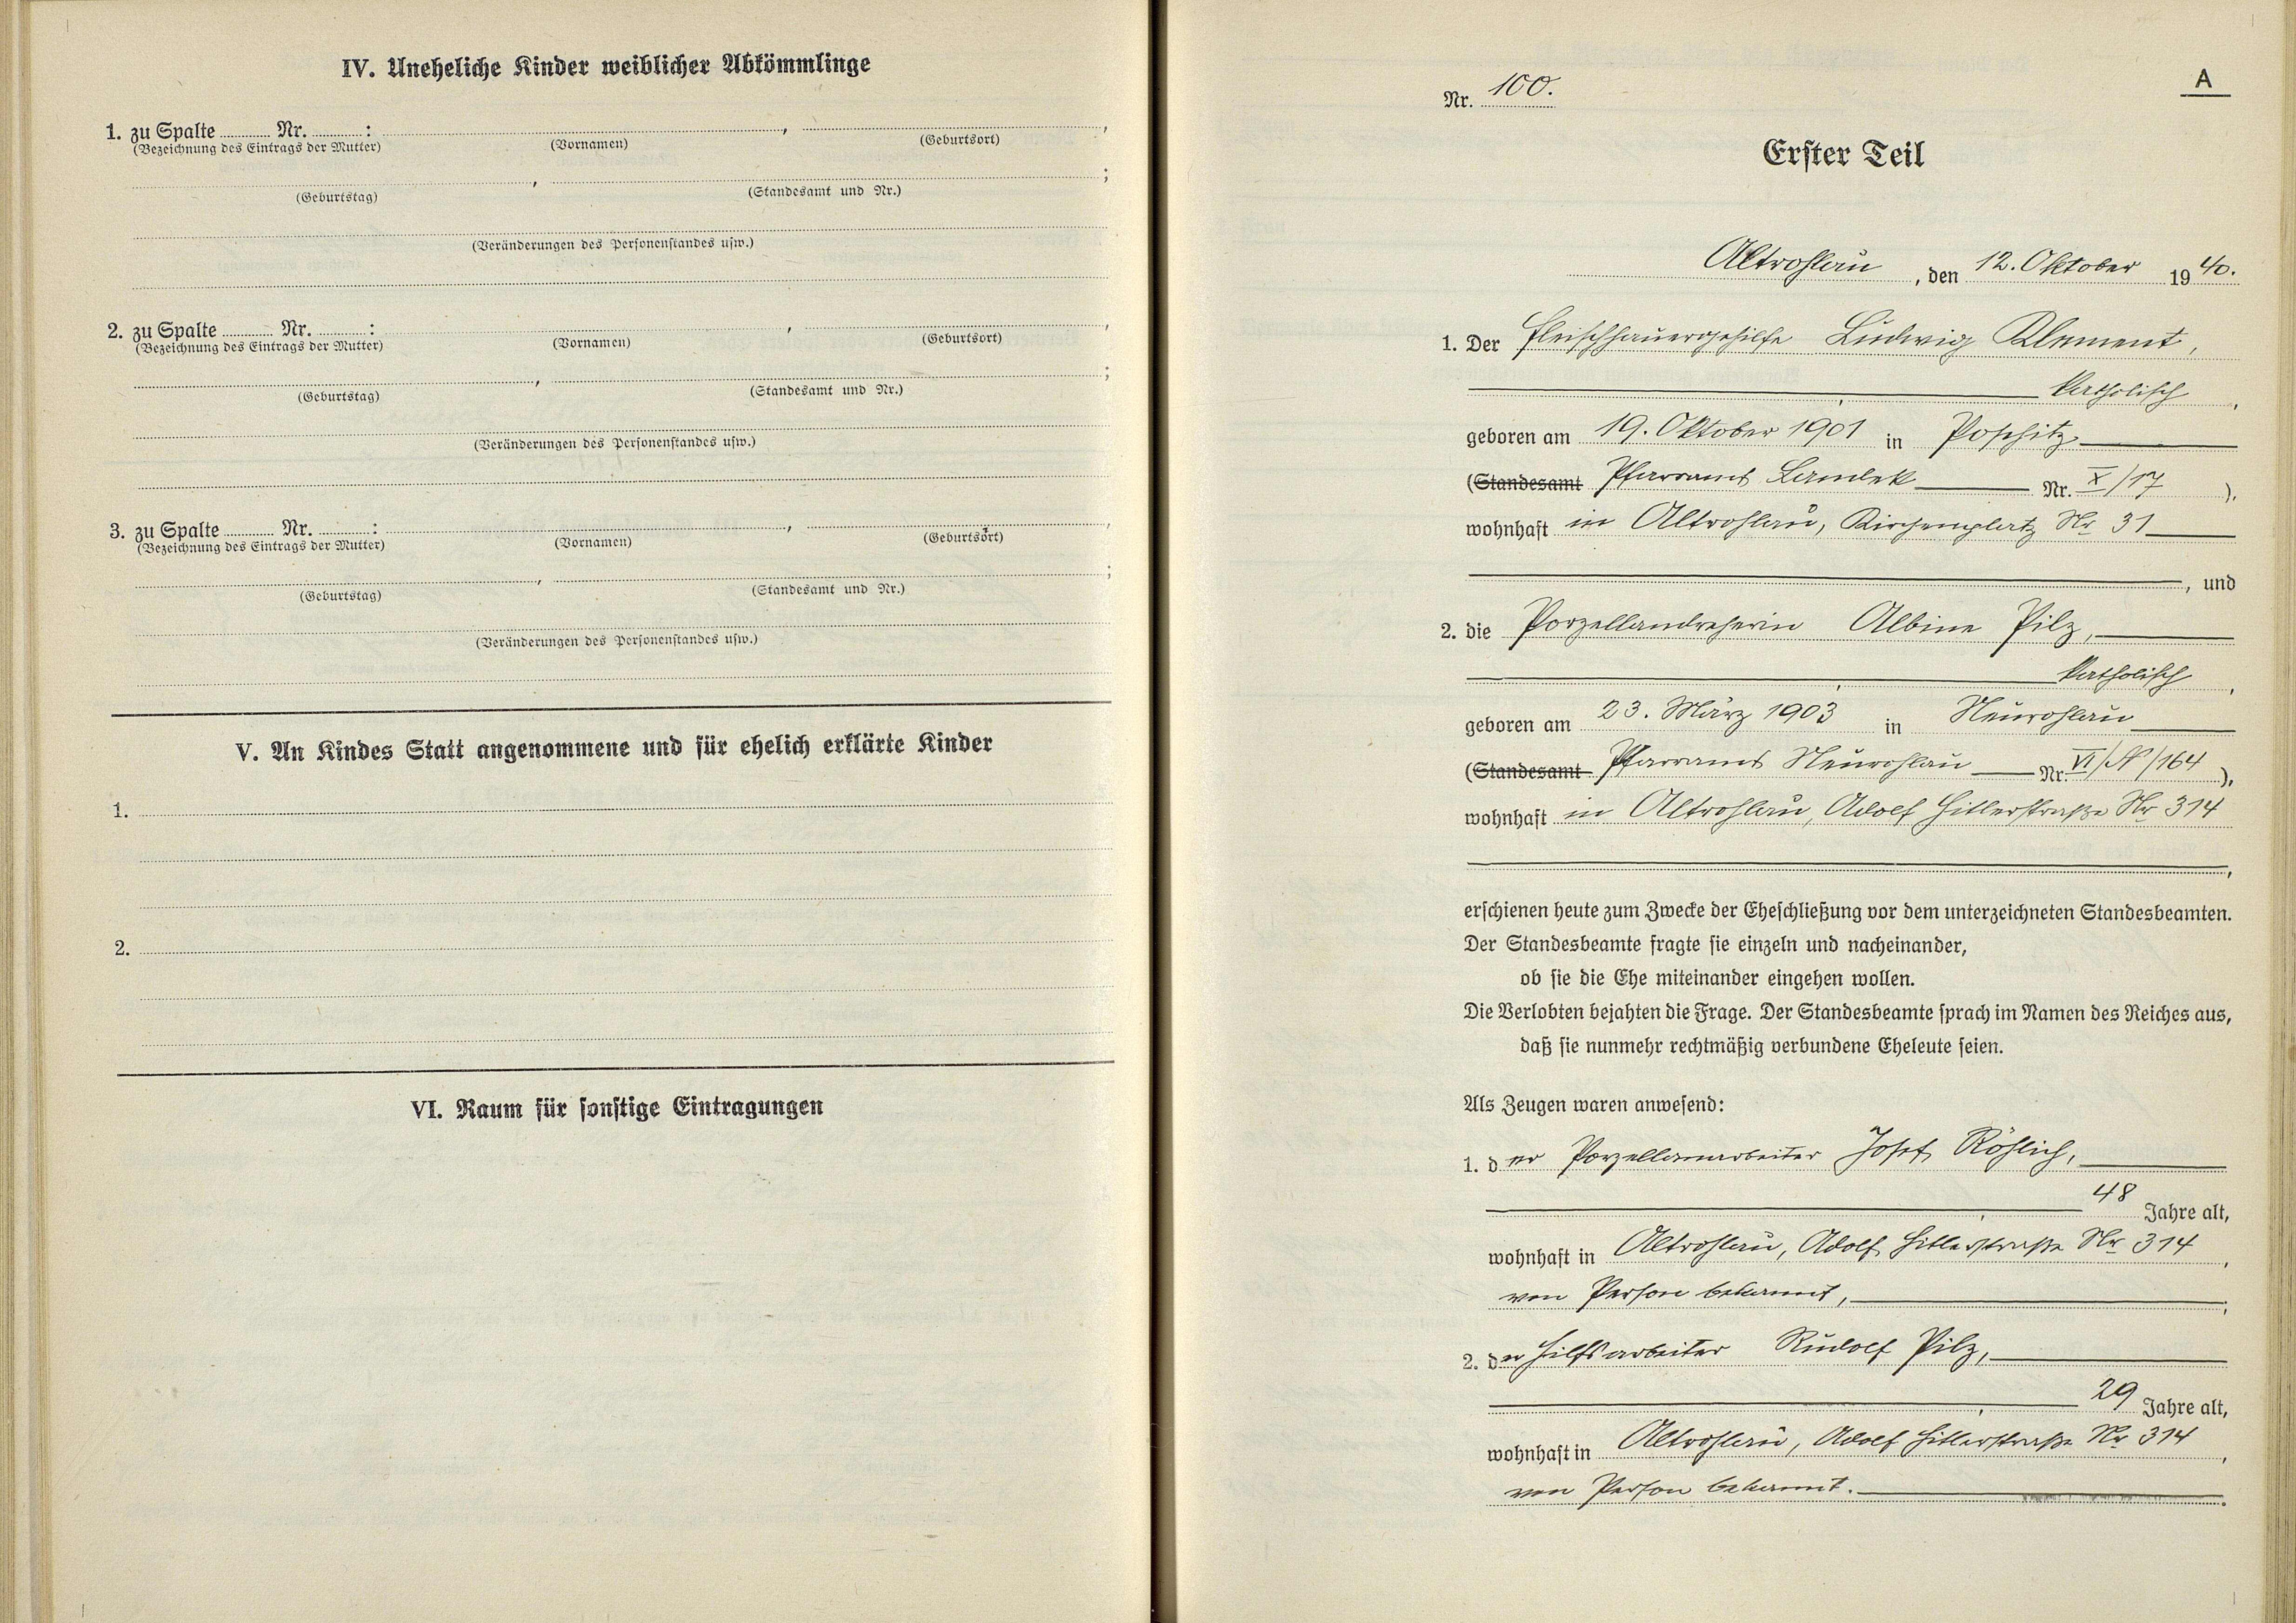 IV. Uneheliche Kinder weiblicher Abkömmlinge
1. zu Spalte Nr. : , ,
(Bezeichnung des Eintrags der Mutter) (Vornamen) (Geburtsort)
, ;
(Geburtstag) (Standesamt und Nr.)
(Veränderungen des Personenstandes usw.)
2. zu Spalte Nr. : , ,
(Bezeichnung des Eintrags der Mutter) (Vornamen) (Geburtsort)
, ;
(Geburtstag) (Standesamt und Nr.)
(Veränderungen des Personenstandes usw.)
3. zu Spalte Nr. : , ,
(Bezeichnung des Eintrags der Mutter) (Vornamen) (Geburtsort)
, ;
(Geburtstag) (Standesamt und Nr.)
(Veränderungen des Personenstandes usw.)
V. An Kindes Statt angenommene und für ehelich erklärte Kinder
1.
2.
VI. Raum für sonstige Eintragungen
A
Nr. 100.
Erster Teil
Altrohlau, den 12. Oktober 1940.
1. Der Fleischhauergehilfe Ludwig Klement,
katholisch,
geboren am 19. Oktober 1901 in Poschitz
(Standesamt Pfarramt Landek Nr. X/17),
wohnhaft in Altrohlau, Kirchenplatz Nr 31
, und
2. die Porzellandreherin Albine Pilz,
katholisch,
geboren am 23. März 1903 in Neurohlau
(Standesamt Pfarramt Neurohlau Nr. VI/N/164),
wohnhaft in Altrohlau, Adolf Hitlerstraße Nr 314
,
erschienen heute zum Zwecke der Eheschließung vor dem unterzeichneten Standesbeamten.
Der Standesbeamte fragte sie einzeln und nacheinander,
ob sie die Ehe miteinander eingehen wollen.
Die Verlobten bejahten die Frage. Der Standesbeamte sprach im Namen des Reiches aus,
daß sie nunmehr rechtmäßig verbundene Eheleute seien.
Als Zeugen waren anwesend:
1. der Porzellanarbeiter Josef Röhlich,
48 Jahre alt,
wohnhaft in Altrohlau, Adolf Hitlerstraße Nr 314,
von Person bekannt,;
2. der Hilfsarbeiter Rudolf Pilz,
29 Jahre alt,
wohnhaft in Altrohlau, Adolf Hitlerstraße Nr 314,
von Person bekannt.